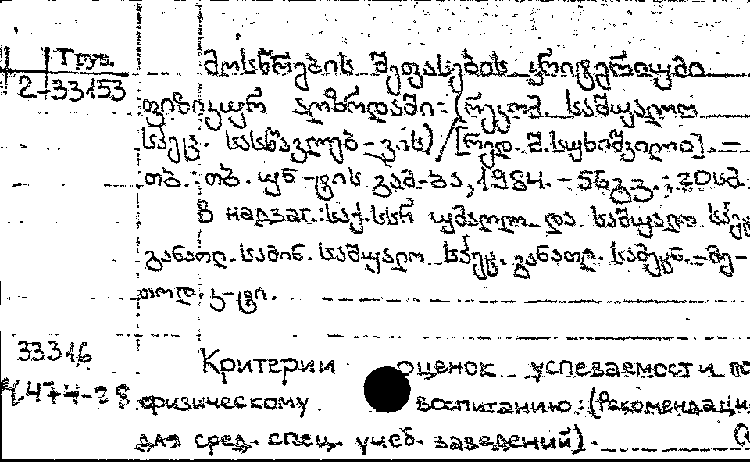 Груз.
2-33153
მოსწრების შეფასების კრიტერიუმი
ფიზიკურ აღზრდაში: (რეკომ. საშუალო
სპეც. სასწავლებ-ვის) / [რედ. შ. სუხიშვილი]. —
თბ.: თბ. უნ-ტის გამ-ბა, 1984. — 56 გვ.; 20 სმ.
В надзаг.: საქ. სსრ უმაღლ. და საშუალო სპეც
განათლ. სამინ. საშუალო სპეც. განათლ. სამეცნ.-მე-
თოდ. კ-ტი.
33316 Критерии оценок успеваемости по
Ч 474-28 физическому воспитанию: (Рекомендаци
для сред. спец. учеб. заведений).